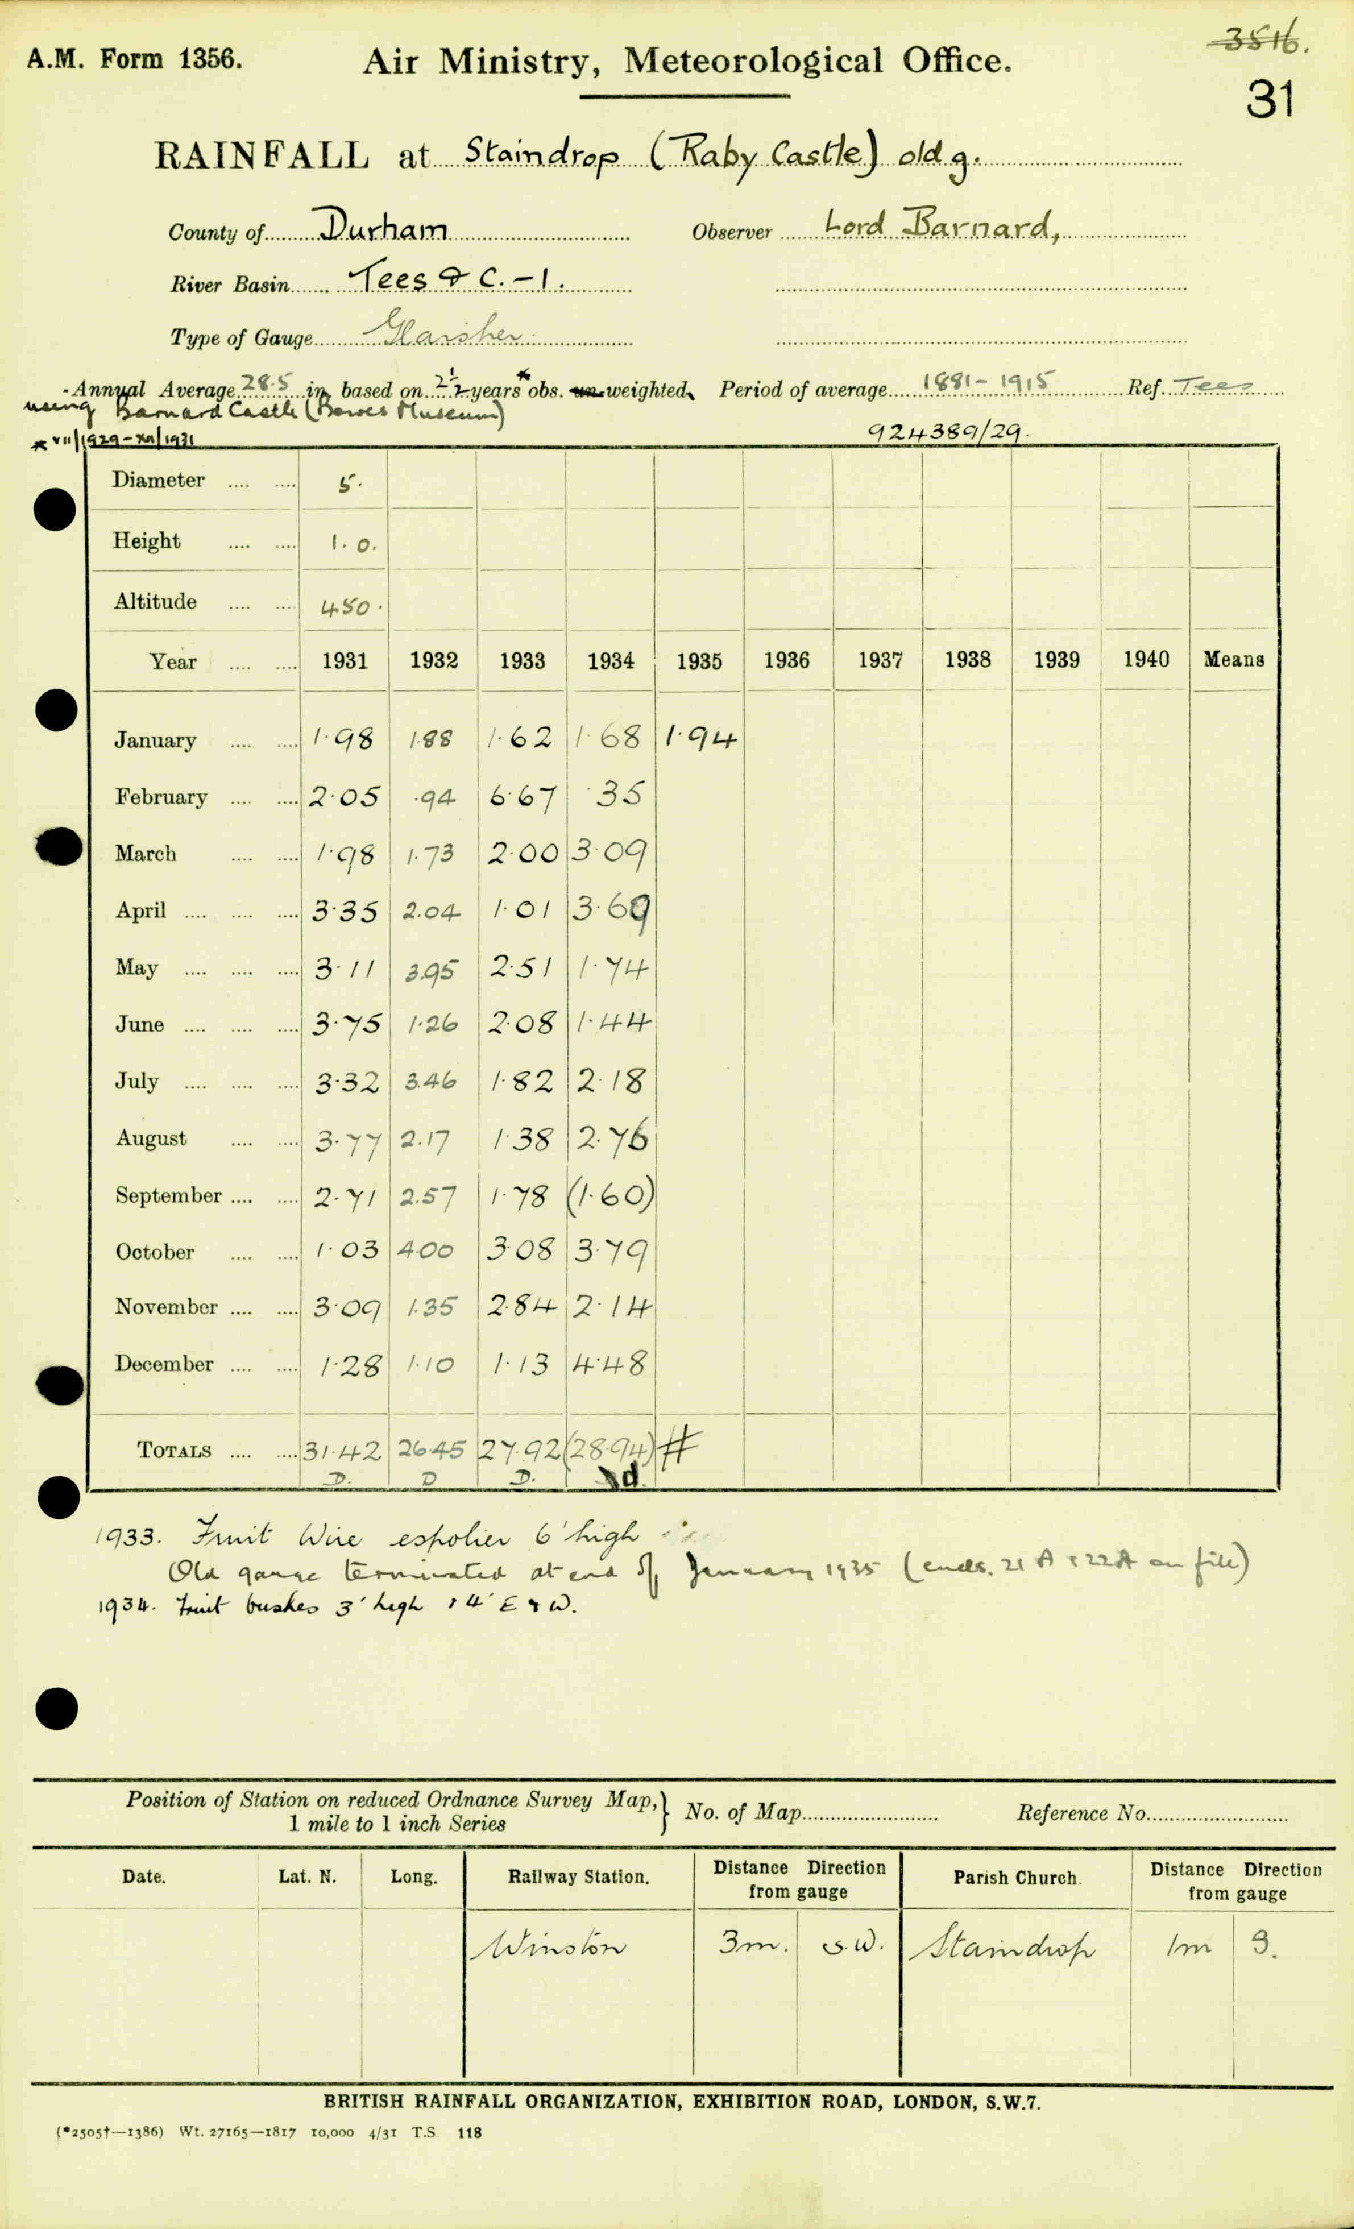 3516.
A.M. Form 1356. Air Ministry, Meteorological Office.
31
RAINFALL at Staindrop (Raby Castle) old g.
County of Durham Observer Lord Barnard,
River Basin Tees & C. - 1.
Type of Gauge Glaisher
Annual Average 28.5 in. based on 2½ years* obs. un-weighted. Period of average 1881-1915 Ref. Tees
using Barnard Castle (Bowes Museum)
* VII/1929-XII/1931 924389/29.
Diameter .... .... 5.
Height .... .... 1.0.
Altitude .... .... 450.
Year .... .... 1931 1932 1933 1934 1935 1936 1937 1938 1939 1940 Means
January .... .... 1.98 1.88 1.62 1.68 1.94
February .... .... 2.05 .94 6.67 .35
March .... .... 1.98 1.73 2.00 3.09
April .... .... .... 3.35 2.04 1.01 3.69
May .... .... .... 3.11 3.95 2.51 1.74
June .... .... .... 3.75 1.26 2.08 1.44
July .... .... .... 3.32 3.46 1.82 2.18
August .... .... 3.77 2.17 1.38 2.76
September .... .... 2.71 2.57 1.78 (1.60)
October .... .... 1.03 4.00 3.08 3.79
November .... .... 3.09 1.35 2.84 2.14
December .... .... 1.28 1.10 1.13 4.48
TOTALS .... .... 31.42 26.45 27.92 (28.94) #
D. D D. d.
1933. Fruit Wire espolier 6' high
Old gauge terminated at end of January 1935 (ends. 21 A & 22A on file)
1934. Fruit bushes 3' high & 4' E & W.
Position of Station on reduced Ordnance Survey Map, } No. of Map Reference No.
1 mile to 1 inch Series
Date. Lat. N. Long. Railway Station. Distance Direction from gauge Parish Church. Distance Direction from gauge
Winston 3m. S.W. Staindrop 1m S.
BRITISH RAINFALL ORGANIZATION, EXHIBITION ROAD, LONDON, S.W.7.
(*2505†—1386) Wt. 27165—1817 10,000 4/31 T.S 118